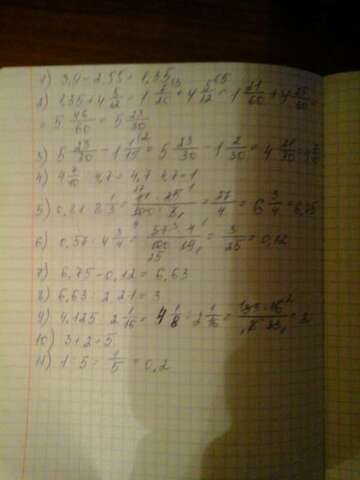 1) 3,4 - 2,05 = 1,35
2) 1,35 + 4 5/12 = 1 7/20 + 4 5/12 = 1 21/60 + 4 25/60 =
= 5 46/60 = 5 23/30
3) 5 23/30 - 1 1/15 = 5 23/30 - 1 2/30 = 4 21/30 = 4 7/10
4) 4 7/10 : 4,7 = 4,7 : 4,7 = 1
6) 0,57 : 4 3/4 = 57 · 4 / 100 · 19 = 3/25 = 0,12
7) 6,75 - 0,12 = 6,63
8) 6,63 : 2,21 = 3
9) 4,125 : 2 1/16 = 4 1/8 : 2 1/16 = 33 · 16 / 8 · 33 = 2
10) 3 + 2 = 5
11) 1 : 5 = 1/5 = 0,2